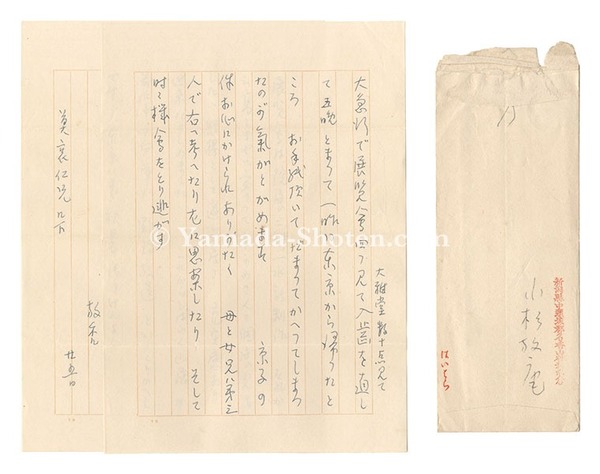 大雅堂数十点見て
大急行で展覧會四つ見て入歯を直し
て五晩とまつて一昨日東京から帰つたと
ころ お手紙頂いてだまつてかへつてしまつ
たのが氣がとがめます 京子の
件お心にかけられありがたく 母と女兄弟三
人で右へ考へたり左に思案したり そして
時々機會をとり逃がす
莫哀仁兄 几下
放菴
廿五日
〆
小杉放庵
© Yamada-Shoten.com